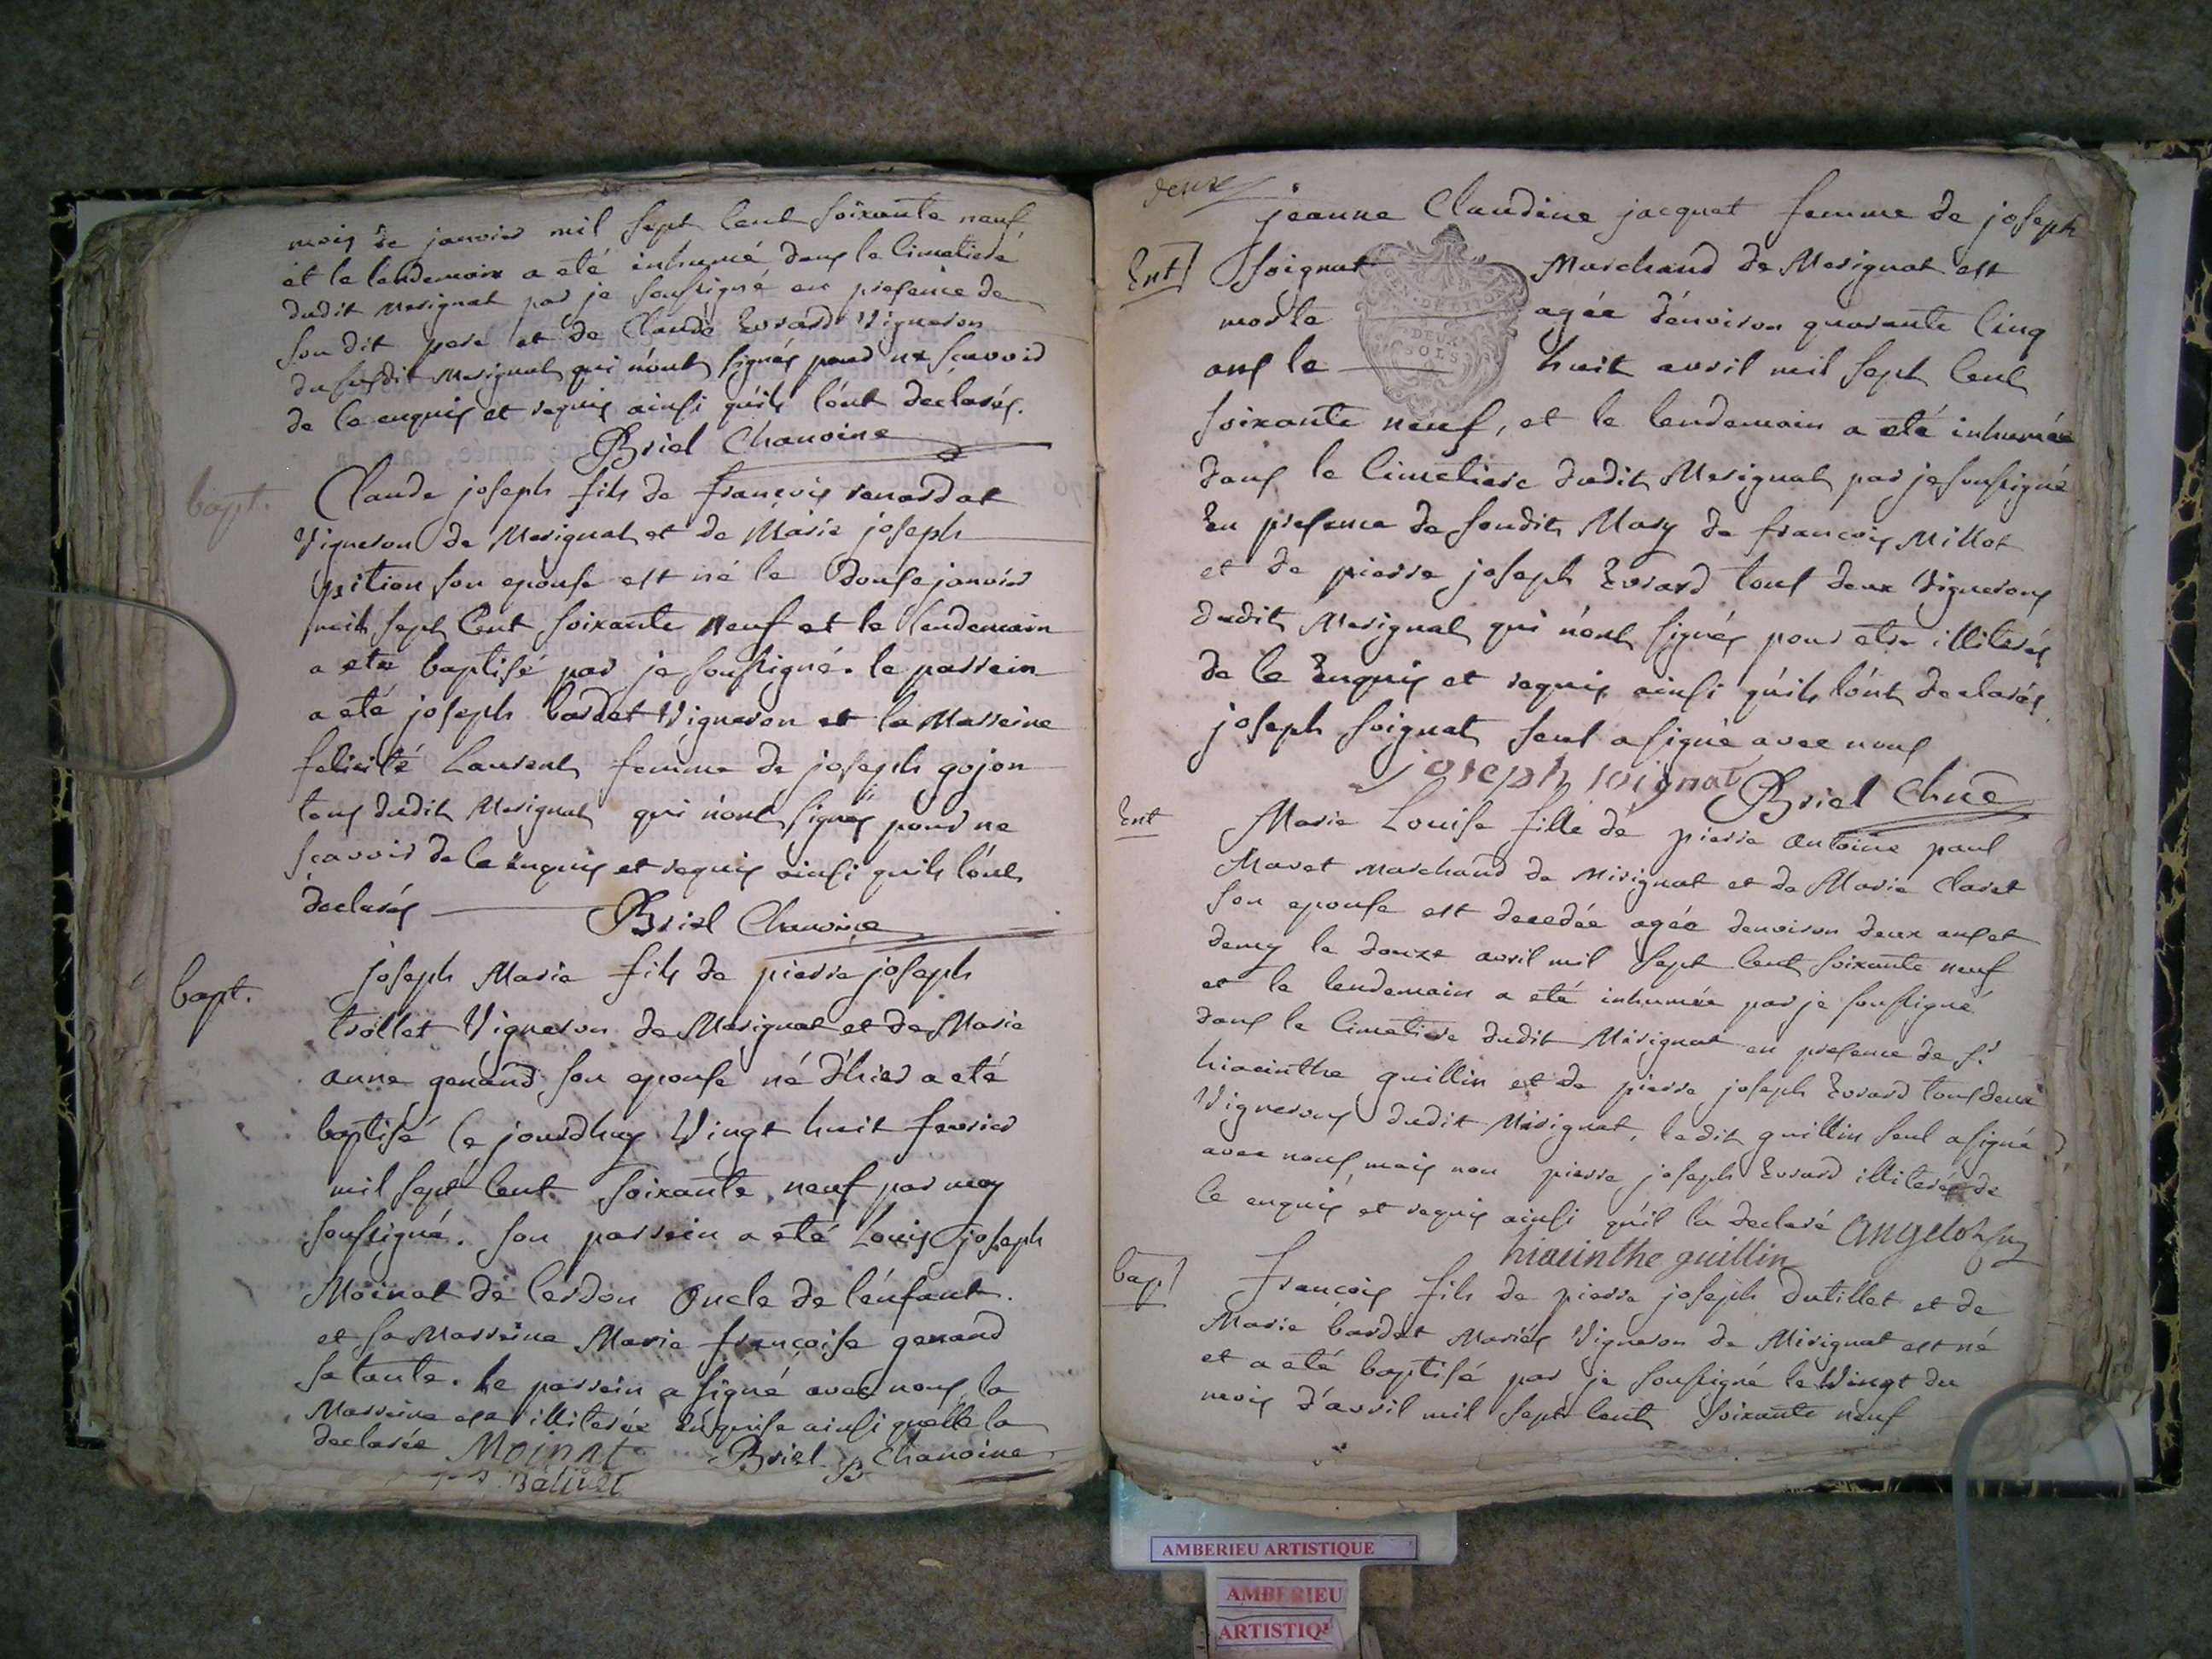 mois de janvier mil sept Cent soixante neuf
et le lendemain a eté inhumé dans le Cimetiere
dudit Merignat par je soussigné en presence de
son dit pere et de Claude Evrard Vigneron
du susdit Merignat qui n'ont signés pour ne scavoir
de ce enquis et requis ainsi qu'ils l'ont declarés.
Briel Chanoine
bapt. Claude joseph fils de françois renardat
Vigneron de Merignat et de Marie joseph
son epouse est né le douse janvier
mil sept Cent soixante Neuf et le lendemain
a ete baptisé par je soussigné. le parrein
a eté joseph bardet Vigneron et la Marreine
felicité Laurent femme de joseph gojon
tous dudit Merignat qui n'ont signés pour ne
scavoir de ce enquis et requis ainsi quils l'ont
declarés
Briel Chanoine
bapt. joseph Marie fils de pierre joseph
trollet Vigneron de Merignat et de Marie
anne genand son epouse né d'hier a eté
baptisé Ce jourdhuy Vingt huit fevrier
mil sept Cent soixante neuf par moy
soussigné. son parrein a eté Louis joseph
Moinat de Cerdon Oncle de l'enfant.
et sa Marreine Marie françoise genand
sa tante. Le parrein a signé avec nous la
Marreine est illiterée enquise ainsi quelle la
declarée Moinat Briel Chanoine
Balivet
deux
jeanne Claudine jacquet femme de joseph
Ent soignat Marchand de Merignat est
morte agée d'environ quarante Cinq
ans le huit avril mil sept Cent
DEUX
SOLS
soixante neuf, et le lendemain a eté inhumée
dans le Cimetiere dudit Merignat par je soussigné
En presence de sondit Mary de françois Millot
et de pierre joseph Evrard tous deux Vignerons
dudit Merignat qui n'ont signés pour etre illiterés
de ce Enquis et requis ainsi qu'ils l'ont declarés
joseph soignat seul a signé avec nous
joseph soignat Briel Chne
Ent Marie Louise fille de pierre antoine paul
Maret marchand de Mirignat et de Marie Claret
son epouse est decedée agée denviron deux ans et
demy le douze avril mil sept Cent soixante neuf
et le lendemain a eté inhumée par je soussigné
dans le Cimetiere dudit Mirignat en presence de sr
hiacinthe guillin et de pierre joseph Evrard tous deux
Vignerons dudit Mirignat, ledit guillin seul a signé
avec nous, mais non pierre joseph Evrard illiteré de
Ce enquis et requis ainsi qu'il la declaré
hiacinthe guillin
bap. françois fils de pierre joseph Dutillet et de
Marie bardet Mariés Vigneron de Mirignat est né
et a eté baptisé par je soussigné le Vingt du
mois d'avril mil sept Cent soixante neuf
AMBERIEU ARTISTIQUE
AMBERIEU
ARTISTIQU